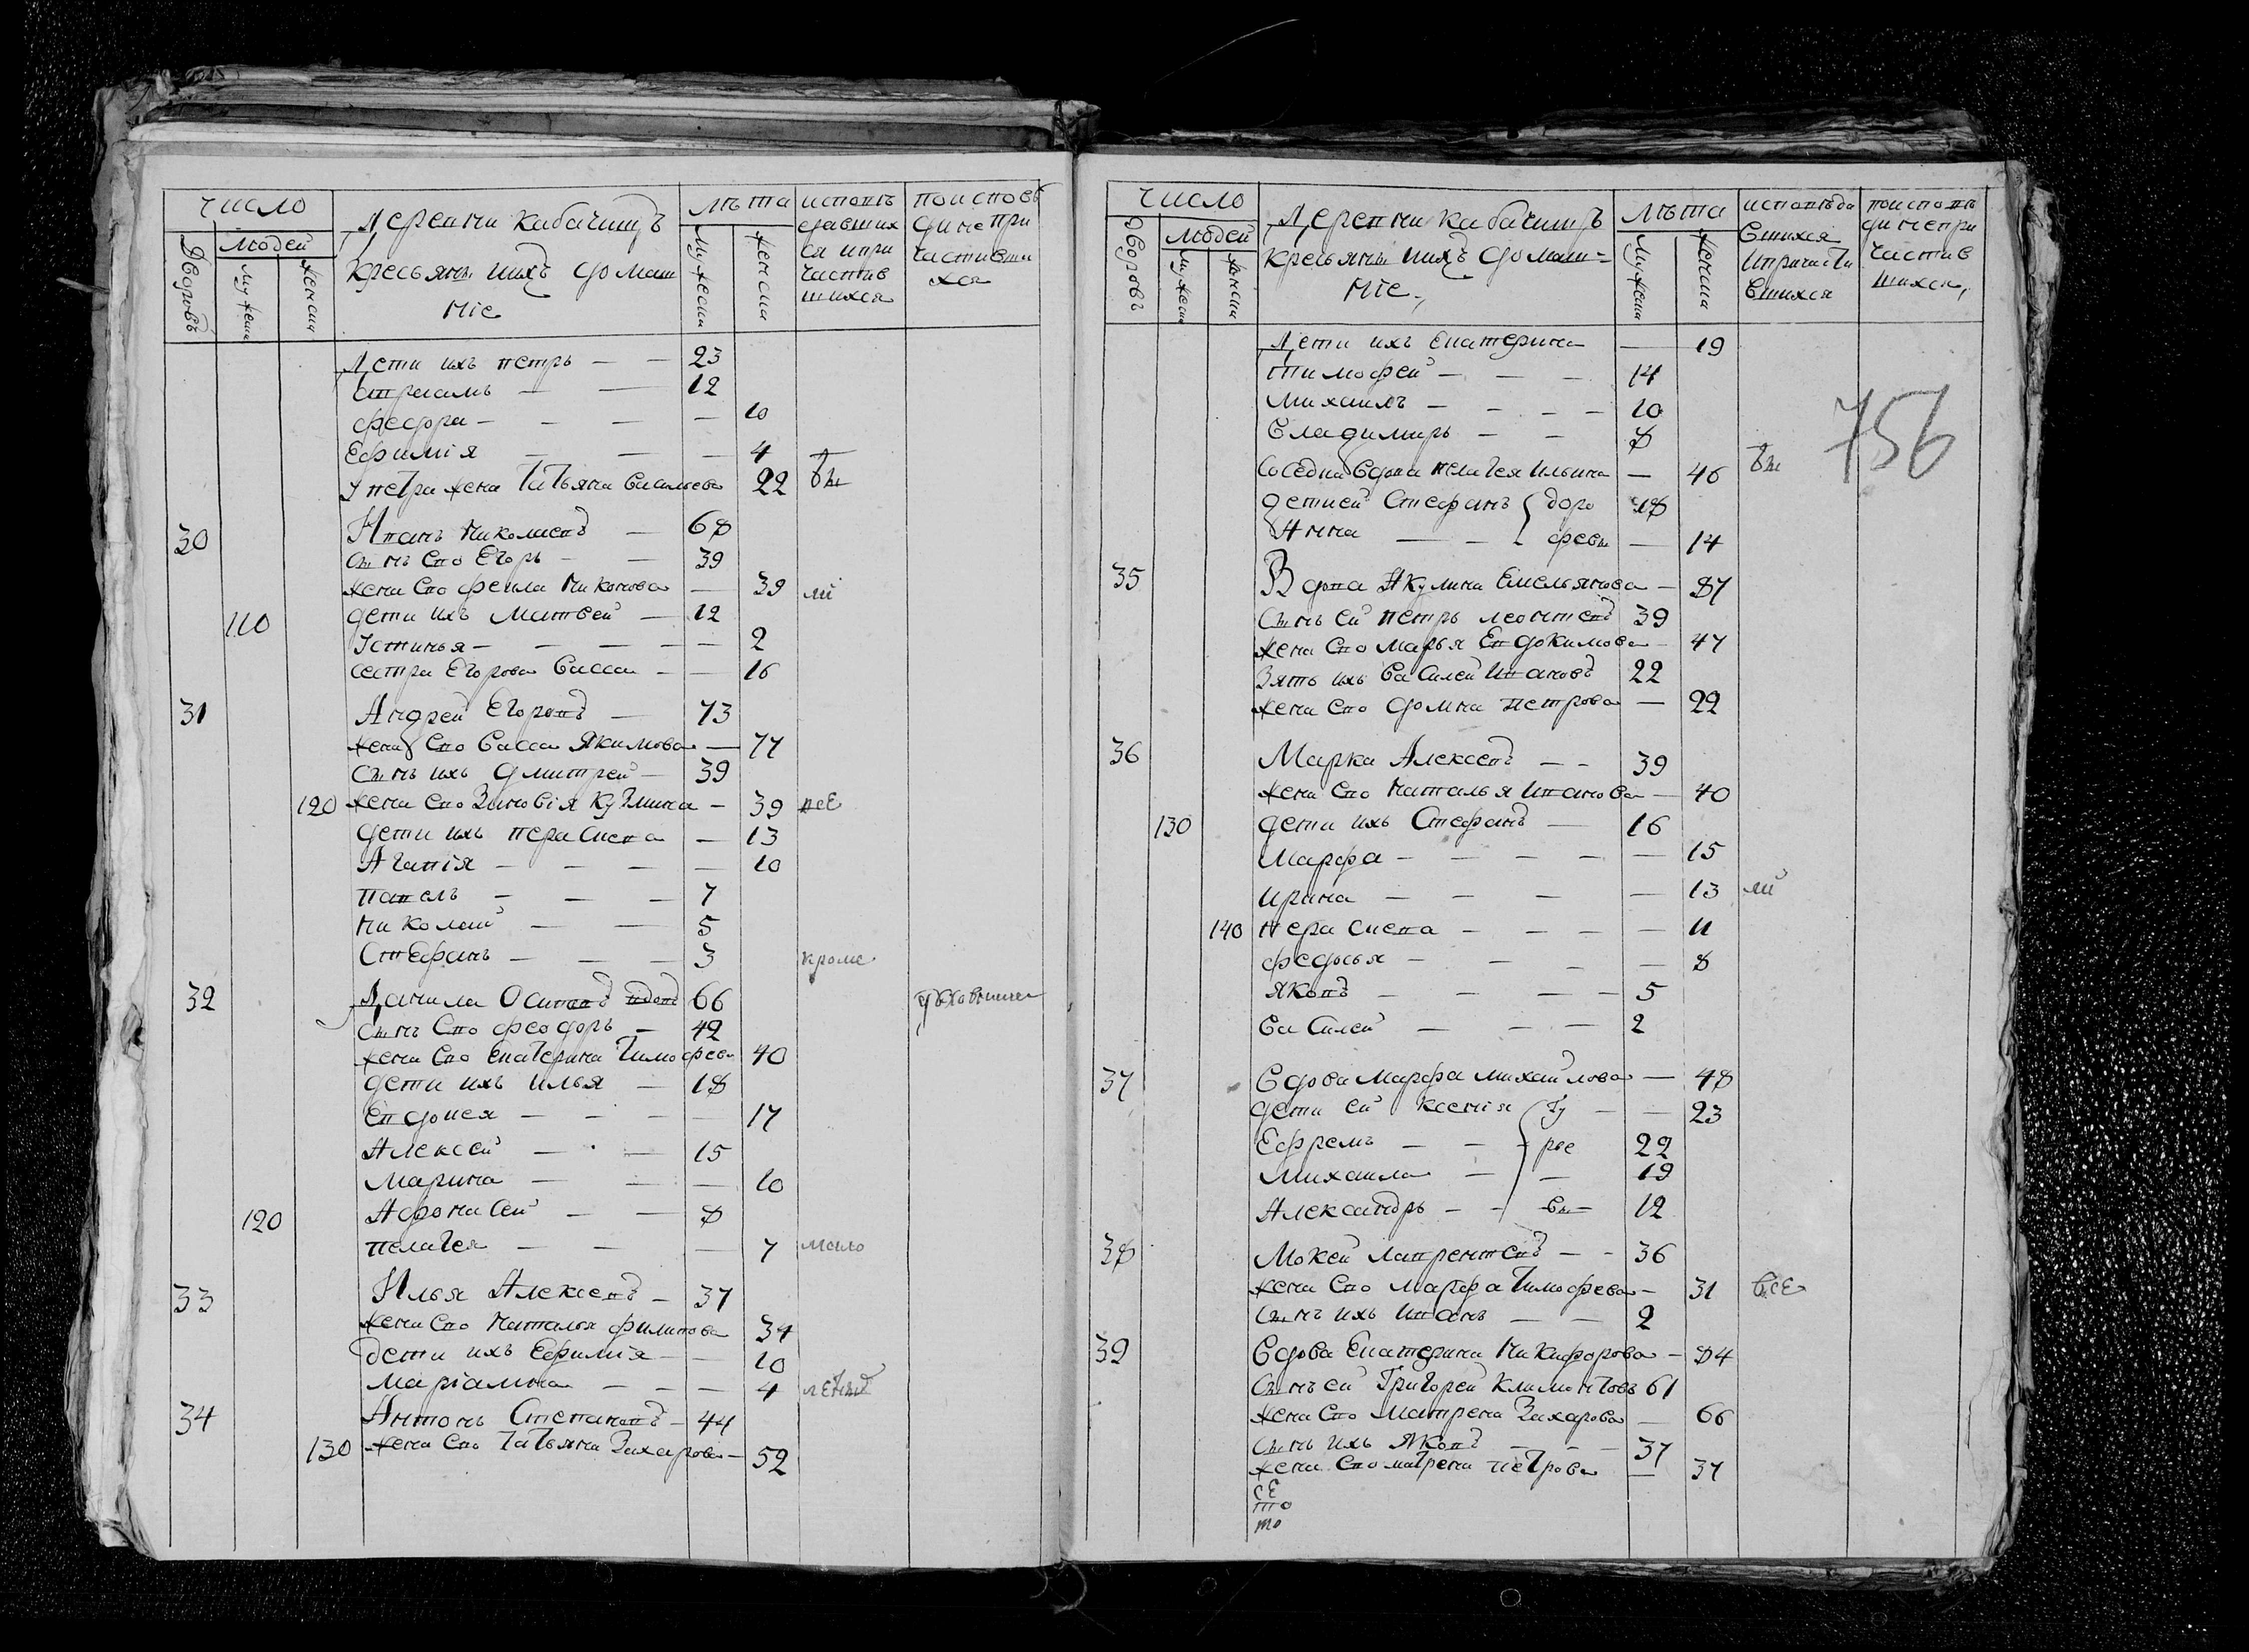 число
людей
Дворовъ
мужеска
женска
Деревни кабачищъ
кресьяны ихъ домаш
ніе
лѣта
мужеска
женска
исповѣ
давших
ся и при
частив
шихся
поисповѣ
ди непри
частивши
хся
Дети ихъ петръ — — 23
Авраамъ — — 12
федора — — — — 10
Ефимія — — — 4
У петра жена Татьяна васильева 22 вы
30 Иванъ николаевъ — 68
сынъ ево Егоръ — — 39
жена ево фекла никонова — 39 ли
110 дети ихъ матвей — 12
Устинья — — — — — 2
сестра Егорова васса — — 16
31 Андрей Егоровъ — 73
жена ево васса якимова — 77
сынъ ихъ дмитрей — 39
120 жена ево Зиновія кузмина — 39 все
дети ихъ парасчева — 13
Агапія — — — — 10
павелъ — — — 7
николай — — 5
Стефанъ — — — 3 кроме
32 Данила Осиповъ вдовъ 66
сынъ ево феодоръ — 42
жена ево екатерина тимофеева 40
дети ихъ илья — 18
Евдокея — — — — 17
Алексей — — — 15
марина — — — 10
120 Афонасей — — 8
пелагея — — — 7 мало
33 Илья Алексеевъ — 37
жена ево наталья филипова 34
дети ихъ Ефимія — — 10
маріамна — — — 4
34 Антонъ Степановъ — 44
130 жена ево татьяна Захарова — 52
число
людей
Дворовъ
мужеска
женска
Деревни кабачищъ
кресьяны ихъ домаш=
ніе
лѣта
мужеска
женска
исповѣда
вшихся
и причасти
вшихся
поисповѣ
ди непри
частив
шихся,
756
Дети ихъ екатерина — 19
тимофей — — — 14
михаилъ — — — — 10
владимиръ — — 8
соседка вдова пелагея ильина — 46 вы
детией Стефанъ доро 18
Анна — — феевы — 14
35 Вдова Акулина емельянова — 87
сынъ ей петръ леонтевъ 39
жена ево марья Евдокимова — 47
Зять ихъ василей ивановъ 22
жена ево домна петрова — 22
36 Марка Алексевъ — — 39
жена ево наталья иванова — 40
130 дети ихъ Стефанъ — 16
марфа — — — — — 15
ирина — — — — 13 ли
140 парасчева — — — — 11
федосья — — — — 8
яковъ — — — — 5
василей — — — 2
37 вдова марфа михайлова — 48
дети ей ксенія гу — — 23
Ефремъ — — рье 22
михаила — — 19
Александръ — — вы — 12
38 Мокей лаврентевъ — — 36
жена ево марфа тимофеева — 31 все
сынъ ихъ иванъ — — 2
39 вдова екатерина никифорова — 84
сынъ ей Григорей климонтовъ 61
жена ево матрена Захарова — 66
сынъ ихъ яковъ — — — 37
жена ево матрена петрова — 37
се
то
то